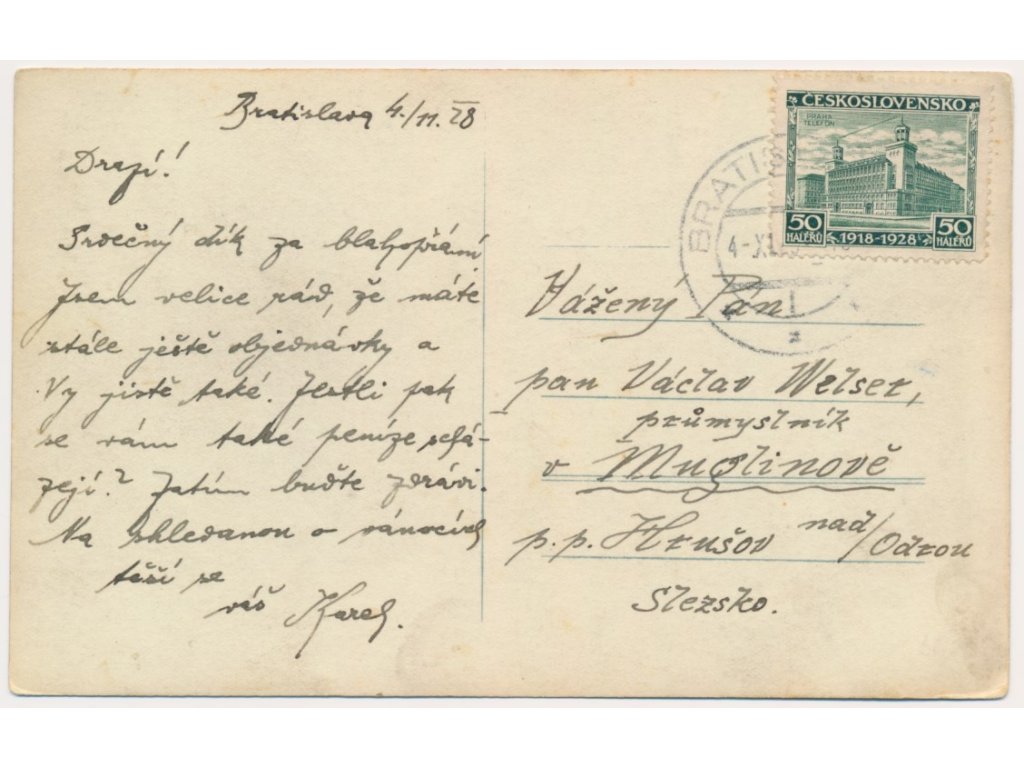 Bratislava 4./11. 28
Drazí!
Srdečný dík za blahopřání.
Jsem velice rád, že máte
stále ještě objednávky a
Vy jistě také. Jestli pak
se vám také peníze schá-
zejí? Zatím buďte zdrávi.
Na shledanou o vánocích
těší se
váš Karel.
ČESKOSLOVENSKO
PRAHA
TELEFON
50 HALÉŘŮ 1918-1928 50 HALÉŘŮ
BRATIS
4-XI
1
Vážený Pan
pan Václav Welser,
průmyslník
v Muglinově
p.p. Hrušov nad/Odrou
Slezsko.